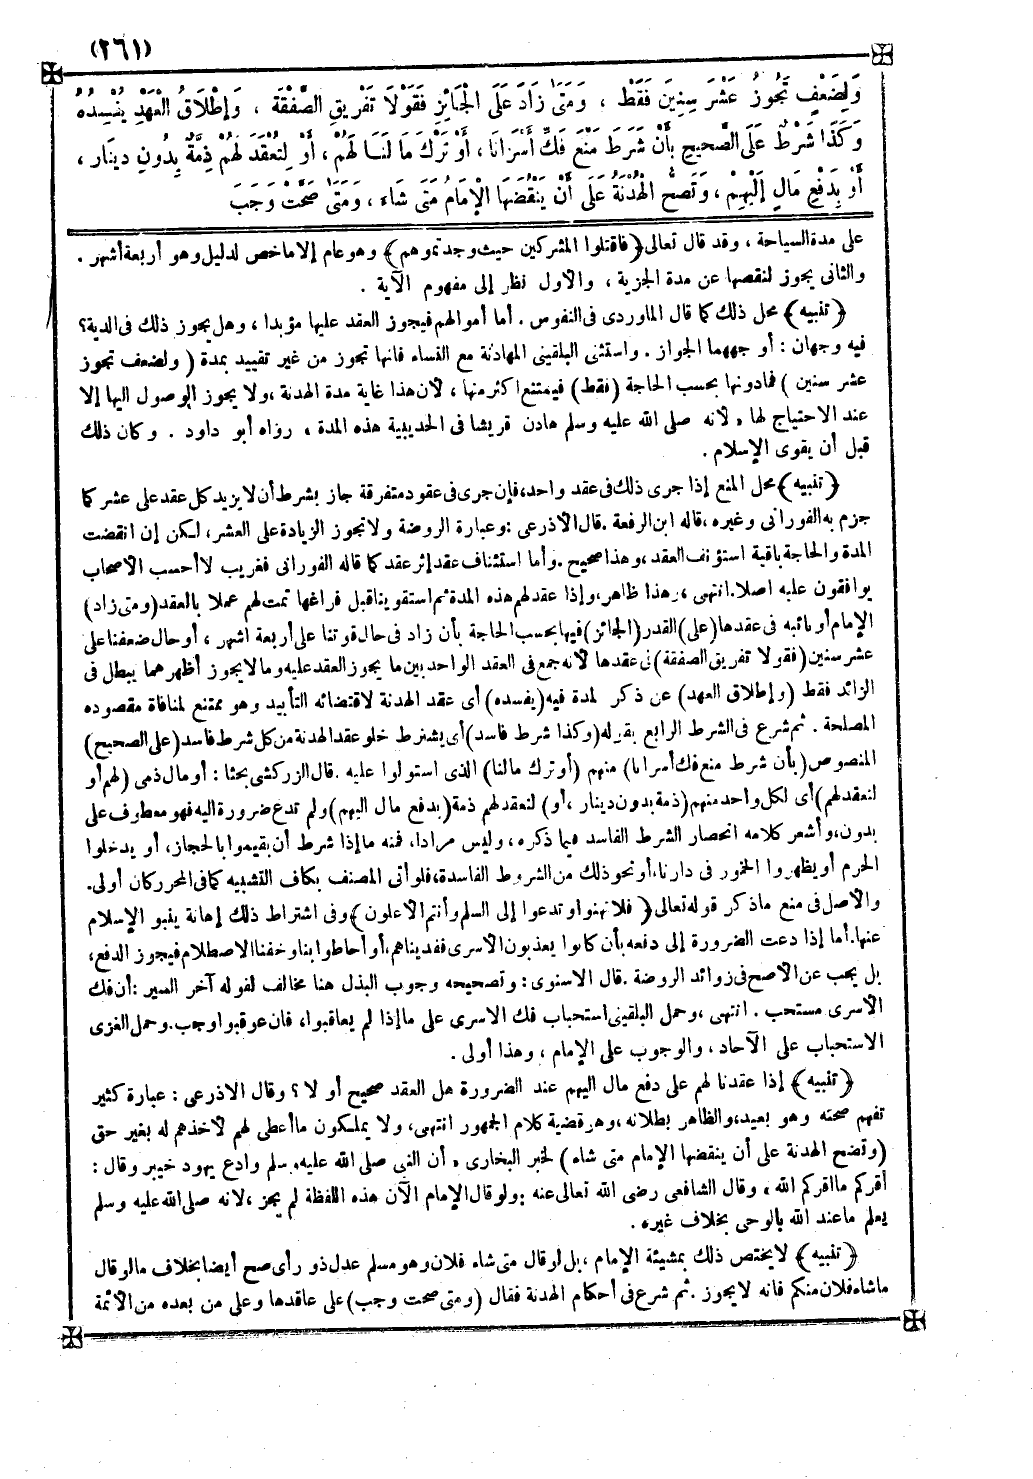 (٢٦١)
وَلِضَعْفٍ تَجُوزُ عَشْرَ سِنِينَ فَقَطْ ، وَمَتَى زَادَ عَلَى الْجَائِزِ فَقَوْلَا تَفْرِيقِ الصَّفْقَةِ ، وَإِطْلَاقُ الْعَهْدِ يُفْسِدُهُ
وَكَذَا شَرْطٌ عَلَى الصَّحِيحِ بِأَنْ شَرَطَ مَنْعَ فَكِّ أَسْرَانَا ، أَوْ تَرْكَ مَا لَنَا لَهُمْ ، أَوْ لِتُعْقَدَ لَهُمْ ذِمَّةٌ بِدُونِ دِينَارٍ ،
أَوْ بِدَفْعِ مَالٍ إِلَيْهِمْ ، وَتَصِحُّ الْهُدْنَةُ عَلَى أَنْ يَنْقُضَهَا الْإِمَامُ مَتَى شَاءَ ، وَمَتَى صَحَّتْ وَجَبَ
على مدة السياحة ، وقد قال تعالى ﴿فاقتلوا المشركين حيث وجدتموهم﴾ وهو عام إلا ما خص لدليل وهو أربعة أشهر .
والثانى يجوز لنقصها عن مدة الجزية ، والأول نظر إلى مفهوم الآية .
﴿تنبيه﴾ محل ذلك كما قال الماوردى فى النفوس . أما أموالهم فيجوز العقد عليها مؤبدا ، وهل يجوز ذلك فى الدية ؟
فيه وجهان : أوجههما الجواز . واستثنى البلقينى المهادنة مع النساء فانها تجوز من غير تقييد بمدة ( ولضعف تجوز
عشر سنين ) فمادونها بحسب الحاجة (فقط) فيمتنع اكثر منها ، لأن هذا غاية مدة الهدنة ، ولا يجوز الوصول اليها إلا
عند الاحتياج لها ، لأنه صلى الله عليه وسلم هادن قريشا فى الحديبية هذه المدة ، رواه أبو داود . وكان ذلك
قبل أن يقوى الإسلام .
﴿تنبيه﴾ محل المنع إذا جرى ذلك فى عقد واحد، فإن جرى فى عقود متفرقة جاز بشرط أن لا يزيد كل عقد على عشر كما
جزم به الفورانى وغيره ، قاله ابن الرفعة . قال الأذرعى : وعبارة الروضة ولا تجوز الزيادة على العشر ، لكن إن انقضت
المدة والحاجة باقية استؤنف العقد ، وهذا صحيح . وأما استئناف عقد إثر عقد كما قاله الفورانى فغريب لا أحسب الأصحاب
يوافقون عليه أصلا . انتهى ، وهذا ظاهر ، وإذا عقد لهم هذه المدة ثم استقوينا قبل فراغها تمت لهم عملا بالعقد (ومتى زاد)
الإمام أو نائبه فى عقدها (على) القدر (الجائز) فيها بحسب الحاجة بأن زاد فى حال قوتنا على أربعة أشهر ، أو حال ضعفنا على
عشر سنين (فقولا تفريق الصفقة) فى عقدها لأنه جمع فى العقد الواحد بين ما يجوز العقد عليه وما لا يجوز أظهرهما يبطل فى
الزائد فقط (وإطلاق العهد) عن ذكر لمدة فيه (يفسده) أى عقد الهدنة لاقتضائه التأبيد وهو ممتنع لمنافاة مقصوده
المصلحة . ثم شرع فى الشرط الرابع بقوله (وكذا شرط فاسد) أى يشترط خلو عقد الهدنة من كل شرط فاسد (على الصحيح)
المنصوص (بأن شرط منع فك أسرانا) منهم (أو ترك مالنا) الذى استولوا عليه . قال الزركشى بحثا : أو مال ذمى (لهم أو
لتعقد لهم) أى لكل واحد منهم (ذمة بدون دينار ، أو) لتعقد لهم ذمة (بدفع مال اليهم) ولم تدع ضرورة اليه فهو معطوف على
بدون ، وأشعر كلامه انحصار الشرط الفاسد فيما ذكره ، وليس مرادا ، فمنه ما إذا شرط أن يقيموا بالحجاز ، أو يدخلوا
الحرم أو يظهروا الخمور فى دارنا ، أو نحو ذلك من الشروط الفاسدة ، فلو أتى المصنف بكاف التشبيه كما فى المحرر كان أولى .
والأصل فى منع ما ذكر قوله تعالى ﴿فلا تهنوا وتدعوا إلى السلم وأنتم الأعلون﴾ وفى اشتراط ذلك إهانة ينبو الإسلام
عنها . أما إذا دعت الضرورة إلى دفعه بأن كانوا يعذبون الأسرى ففديناهم ، أو أحاطوا بنا وخفنا الاصطلام فيجوز الدفع ،
بل يجب عن الأصح فى زوائد الروضة . قال الاسنوى : وتصحيحه وجوب البذل هنا مخالف لقوله آخر السير : أن فك
الأسرى مستحب . انتهى ، وحمل البلقينى استحباب فك الاسرى على ما إذا لم يعاقبوا ، فان عوقبوا وجب . وحمل الغزى
الاستحباب على الآحاد ، والوجوب على الإمام ، وهذا أولى .
﴿تنبيه﴾ إذا عقدنا لهم على دفع مال اليهم عند الضرورة هل العقد صحيح أو لا ؟ وقال الاذرعى : عبارة كثير
تفهم صحته وهو بعيد ، والظاهر بطلانه ، وهو قضية كلام الجمهور انتهى ، ولا يملكون ما أعطى لهم لأخذهم له بغير حق
(وتصح الهدنة على أن ينقضها الإمام متى شاء ) لخبر البخارى ، أن النبى صلى الله عليه وسلم وادع يهود خيبر وقال :
أقركم ما اقركم الله ، وقال الشافعى رضى الله تعالى عنه : ولو قال الإمام الآن هذه اللفظة لم يجز ، لانه صلى الله عليه وسلم
يعلم ما عند الله بالوحى بخلاف غيره .
﴿تنبيه﴾ لا يختص ذلك بمشيئة الإمام ، بل لو قال متى شاء فلان وهو مسلم عدل ذو رأى صح أيضا بخلاف ما لو قال
ما شاء فلان منكم فانه لا يجوز . ثم شرع فى أحكام الهدنة فقال (ومتى صحت وجب) على عاقدها وعلى من بعده من الأئمة